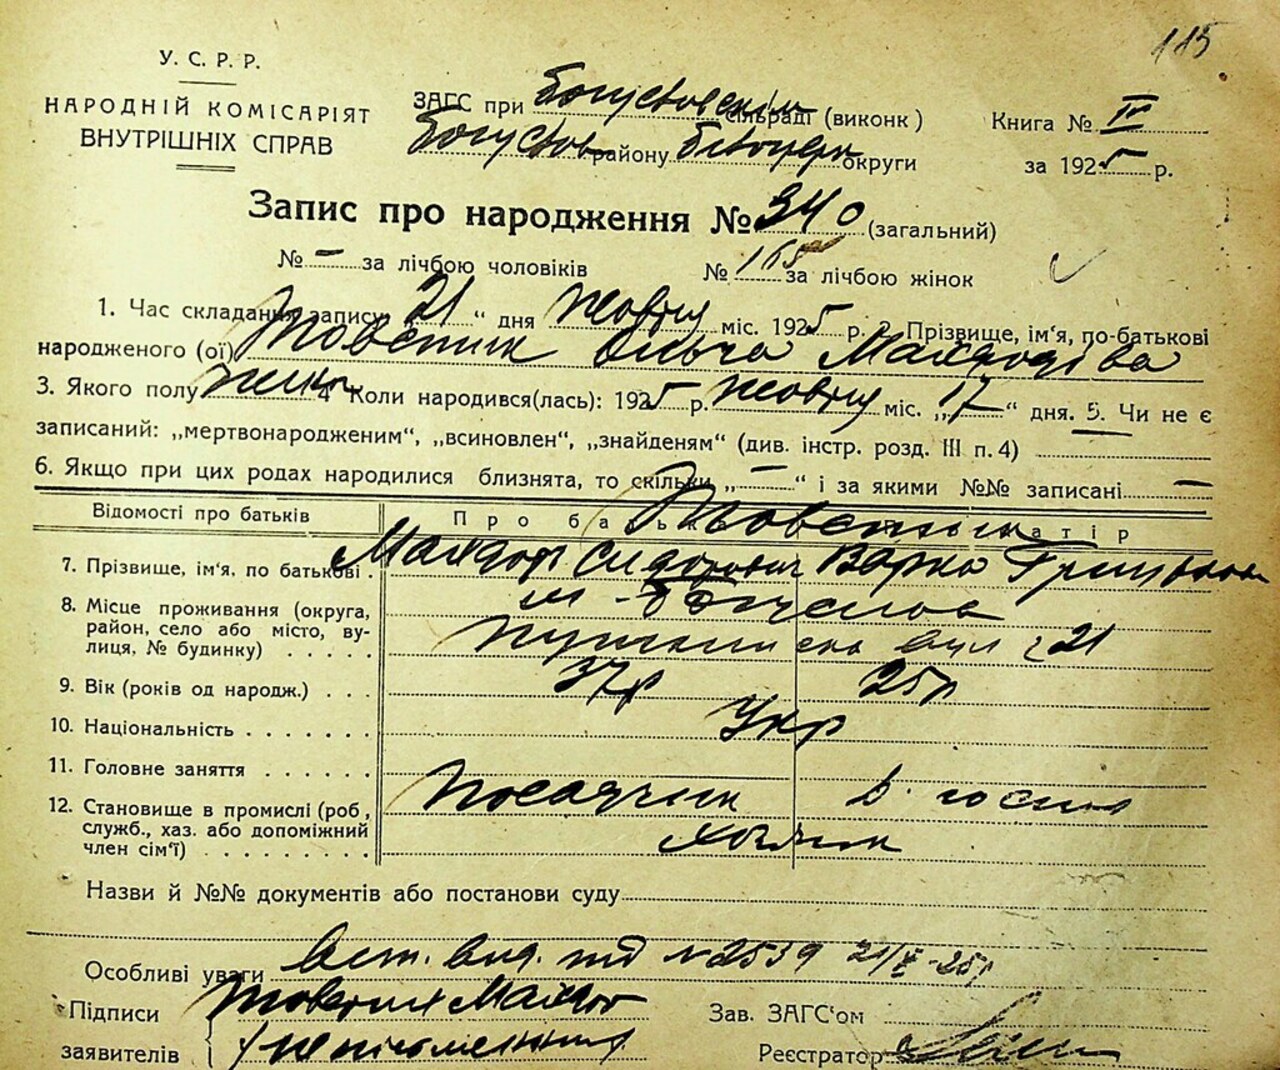 115
У. С. Р. Р.
НАРОДНІЙ КОМІСАРІЯТ
ВНУТРІШНІХ СПРАВ
ЗАГС при Богуславскім сільраді (виконк )
Богуслав району Білоцерк округи
Книга № III
за 1925 р.
Запис про народження № 340 (загальний)
№ – за лічбою чоловіків № 165 за лічбою жінок
1. Час складання запису 21 “ дня жовтня міс. 1925 р. 2. Прізвище, ім'я, по-батькові
народженого (ої) Товстик Ольга
3. Якого полу жіноч 4 Коли народився(лась): 1925 р. жовтня міс. „ 17 “ дня. 5. Чи не є
записаний: „мертвонародженим“, „всиновлен“, „знайденям“ (див. інстр. розд. III п. 4)
6. Якщо при цих родах народилися близнята, то скільки „ – “ і за якими №№ записані –
Відомості про батьків Про батька матір
7. Прізвище, ім'я, по батькові . Сидорович Варка
8. Місце проживання (округа,
район, село або місто, ву-
лиця, № будинку) . . . . .
м. Богуслав
вул 21
9. Вік (років од народж.) . . . 37р 25р
10. Національність . . . . . . . Укр
11. Головне заняття . . . . . .
12. Становище в промислі (роб ,
служб., хаз. або допоміжний
член сім'ї) . . . . . . . .
хазяїн
Назви й №№ документів або постанови суду
Особливі уваги вид. № 2539 21/X-25р
Підписи Товстик
заявителів (неписьменний
Зав. ЗАГС‘ом
Реєстратор